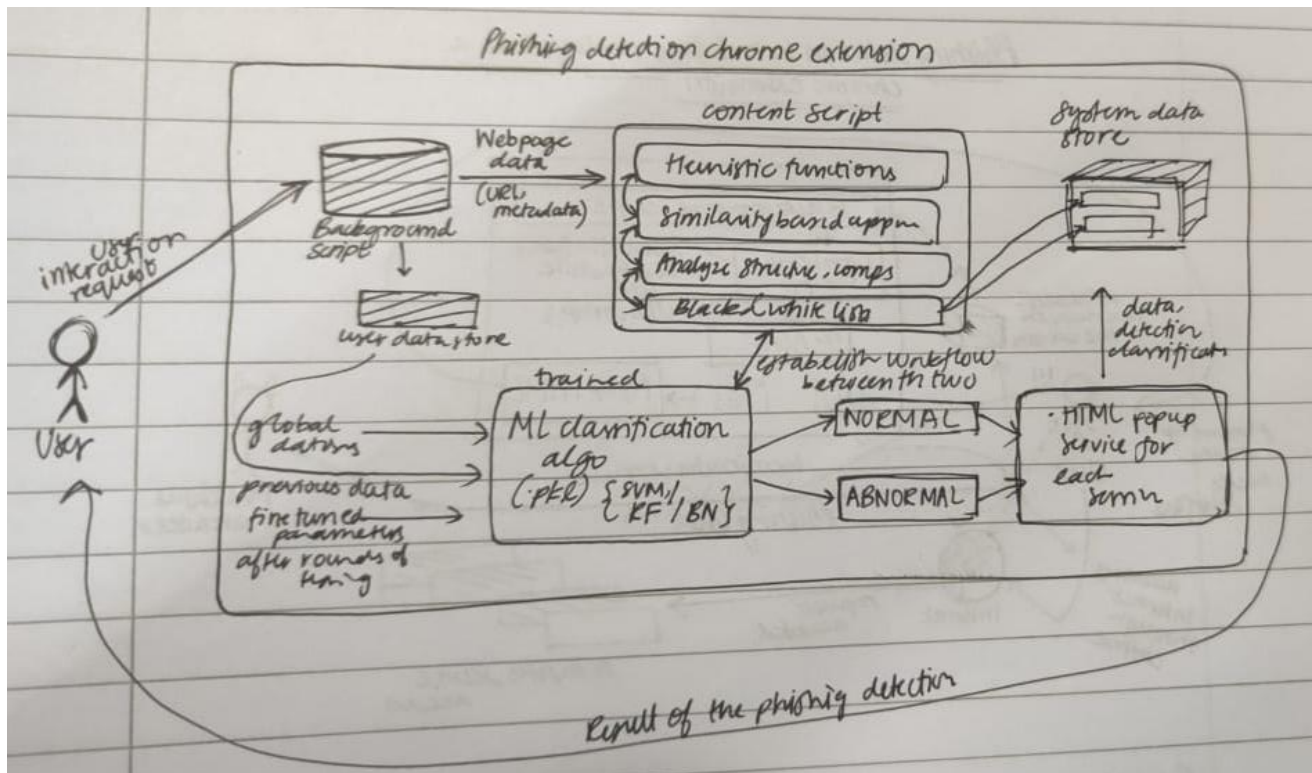 Phishing detection chrome extension
content script
system data
store
Webpage
data
(URL,
metadata)
Heuristic functions
Similarity based
Analyze structure, comps
Black & white
Background
script
user
interaction
request
user data store
User
establish workflow
between th two
data,
detection
trained
ML classification
algo
(.pkl) {SVM/
RF / BN}
global
previous data
finetuned
parameters
after rounds of
NORMAL
ABNORMAL
HTML popup
service for
each
Result of the phishig detection